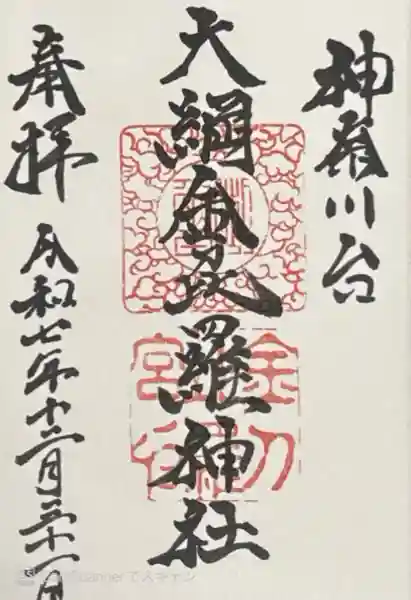 神奈川台
大綱金毘羅神社
奉拝
令和七年十二月三十一日
CamScannerでスキャン